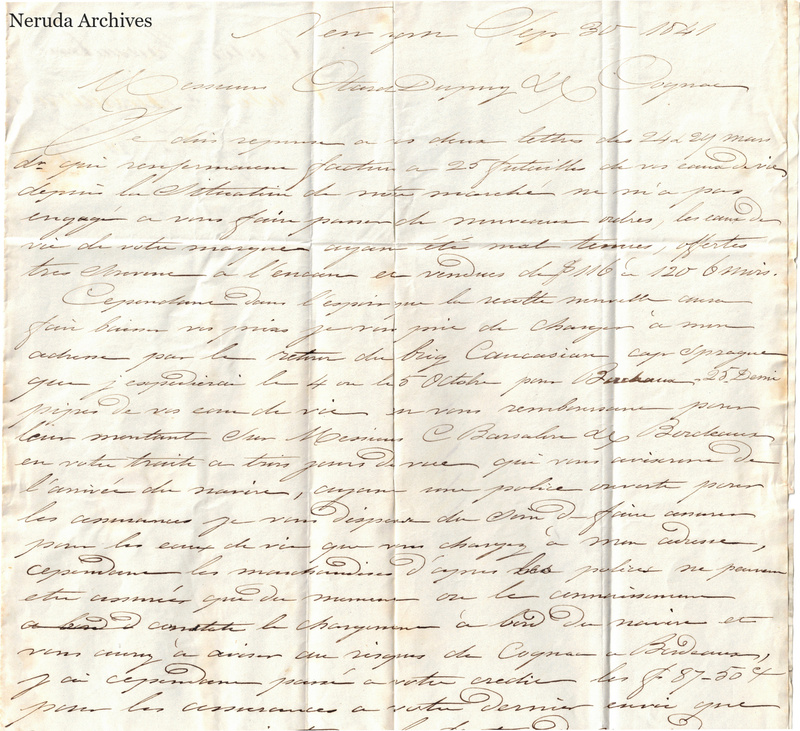 Neruda Archives
New York Sep 30 1841
Messieurs Otard Dupuy & Co Cognac
Je dois reponse a vos deux lettres des 24 & 29 mars
Dr qui renfermaient facture a 25 futailles de vos eaux de vie,
depuis la Situation de notre marché ne m'a pas
engagé a vous faire passer de nouveaux ordres, les eaux de
vie de votre marque ayant été mal tenues, offertes
tres souvent a l'encan et vendues de $ 116 à 120 6 mois.
Cependant dans l'espoir que la recolte nouvelle aura
fait baisser vos prix je vous prie de charger à mon
adresse par le retour du brig Caucasian cap Sprague
que j'expedierai le 4 ou le 5 Octobre pour Bordeaux, 25 Demi
pipes de vos eaux de vie en vous remboursant pour
leur montant Sur Messieurs C Barsalou & Co Bordeaux
en votre traite a trois jours de vue qui vous aviseront de
l'arrivée du navire, ayant une police ouverte pour
les assurances je vous dispense du Soin de faire assurer
pour les eaux de vie que vous chargez à mon adresse,
cependant les marchandises d'apres les polices ne peuvent
etre assurées que du moment ou le connaissement
a bord d constate le chargement à bord du navire et
vous aurez à aviser au risques de Cognac a Bordeaux,
j'ai cependant passé a votre credit les $ 87-50 cts
pour les assurances a votre dernier envoi que